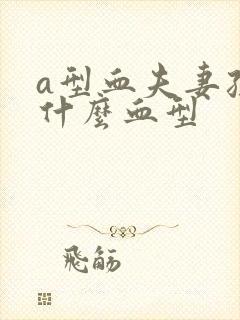 a型血夫妻孩
什麼血型
飛觞